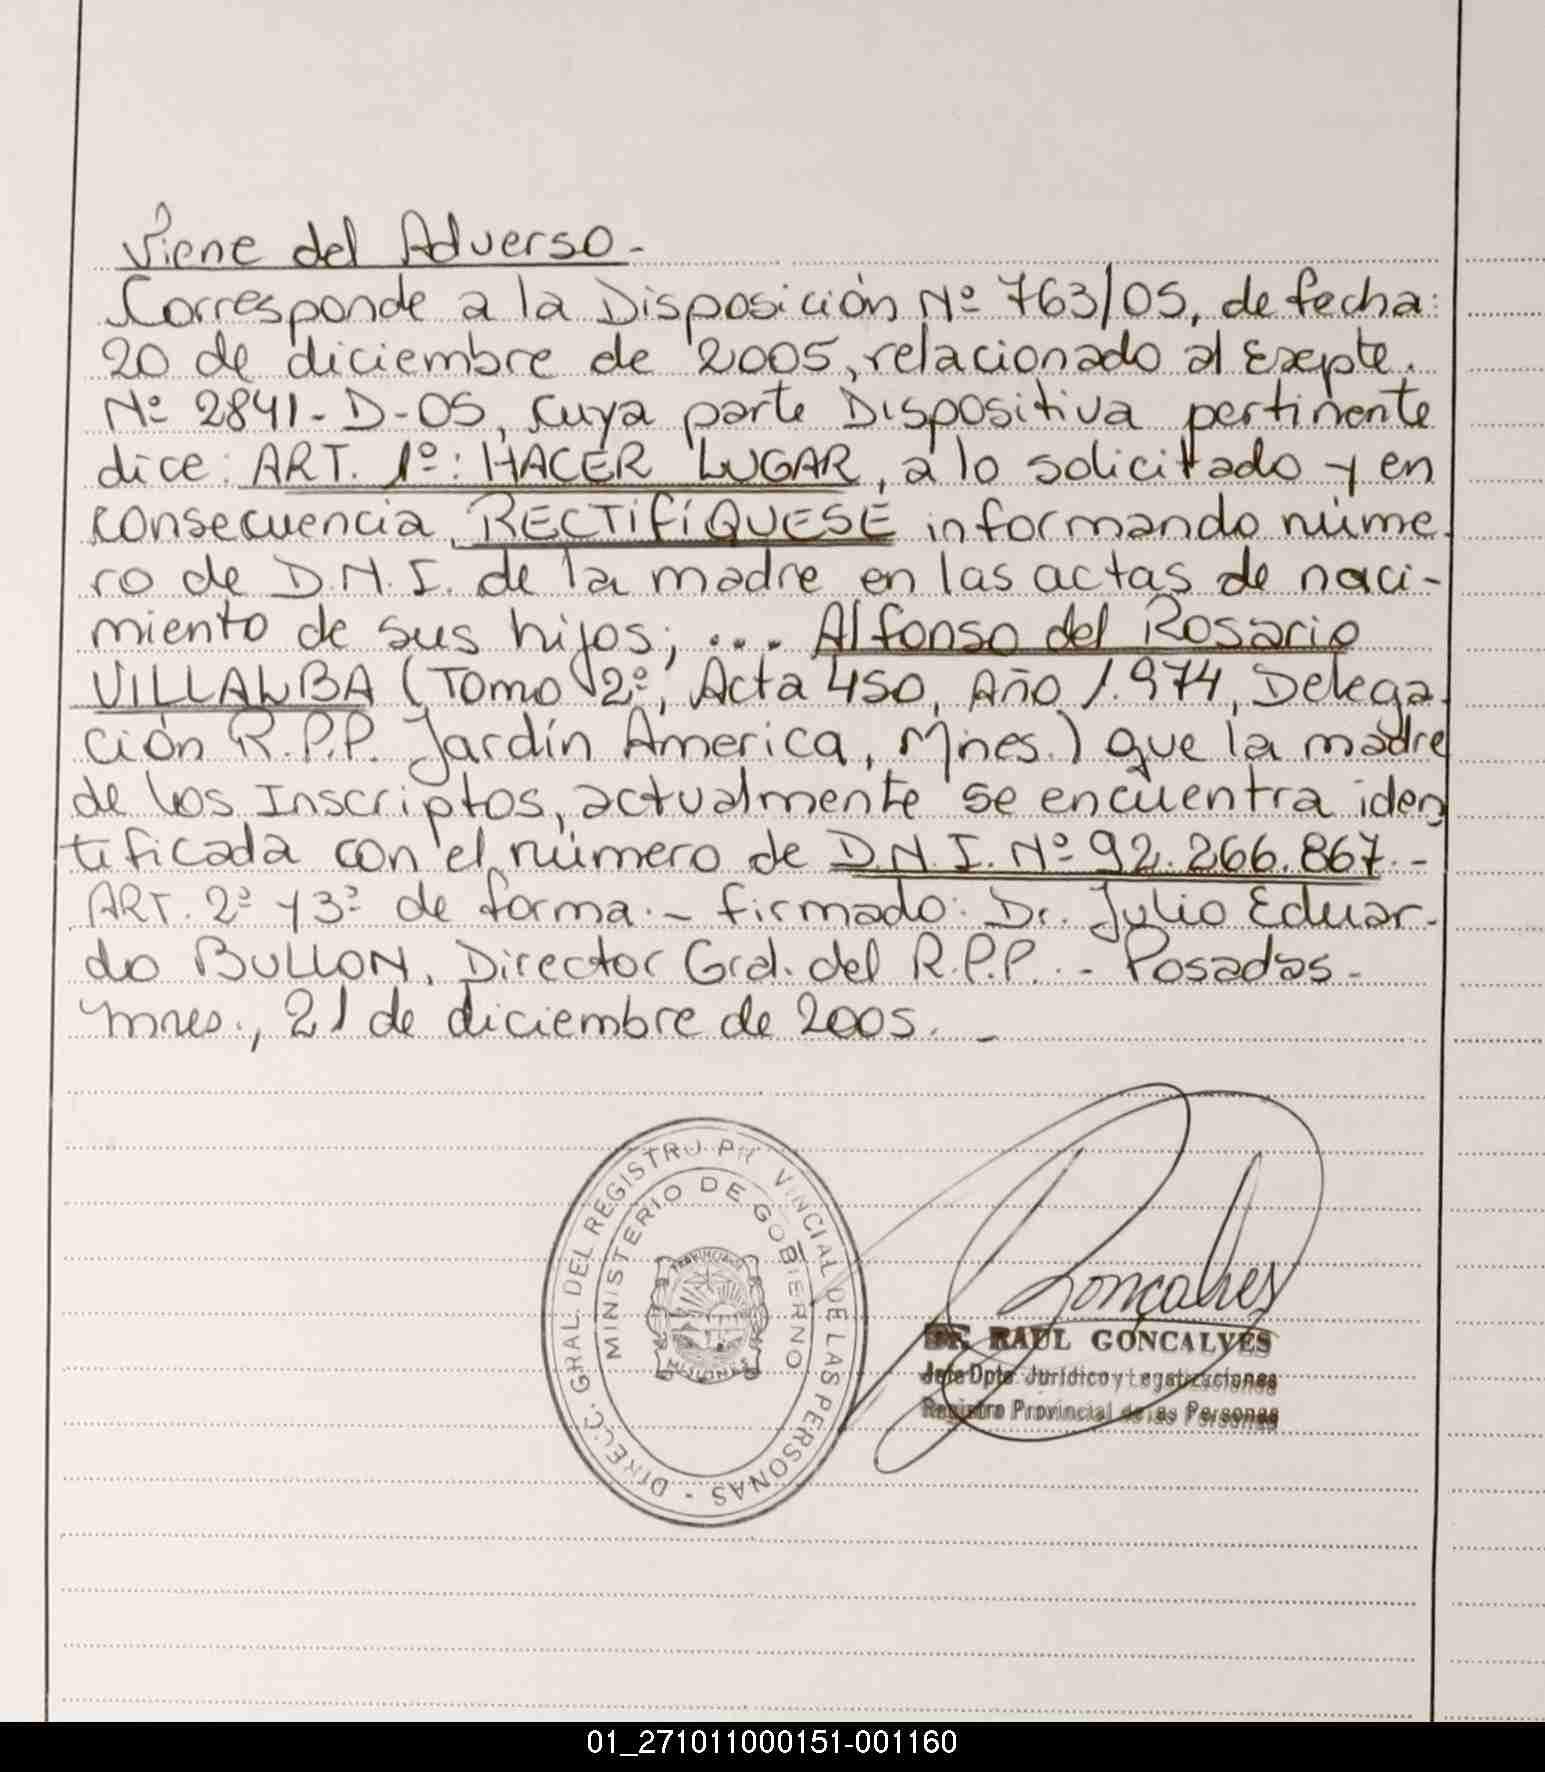 Viene del Adverso.-
Corresponde a la Disposición Nº 763/05, de fecha:
20 de diciembre de 2005, relacionado al Exepte.
Nº 2841-D-05, cuya parte Dispositiva pertinente
dice: ART. 1º: HACER LUGAR, a lo solicitado y en
consecuencia, RECTIFÍQUESE informando núme-
ro de D.N.I. de la madre en las actas de naci-
miento de sus hijos; ... Alfonso del Rosario
VILLALBA (Tomo 2º, Acta 450, Año 1.974, Delega-
ción R.P.P. Jardín America, Mnes.) que la madre
de los Inscriptos, actualmente se encuentra iden
tificada con el número de D.N.I. Nº 92.266.867.-
ART. 2º y 3º de forma.- firmado: Dr. Julio Eduar-
do BULLON, Director Gral. del R.P.P.- Posadas-
mnes., 21 de diciembre de 2005.-
DIRECC. GRAL. DEL REGISTRO PROVINCIAL DE LAS PERSONAS -
MINISTERIO DE GOBIERNO
MISIONES
Goncalves
DR. RAUL GONCALVES
Jefe Dpto. Jurídico y Legalizaciones
Registro Provincial de las Personas
01_271011000151-001160